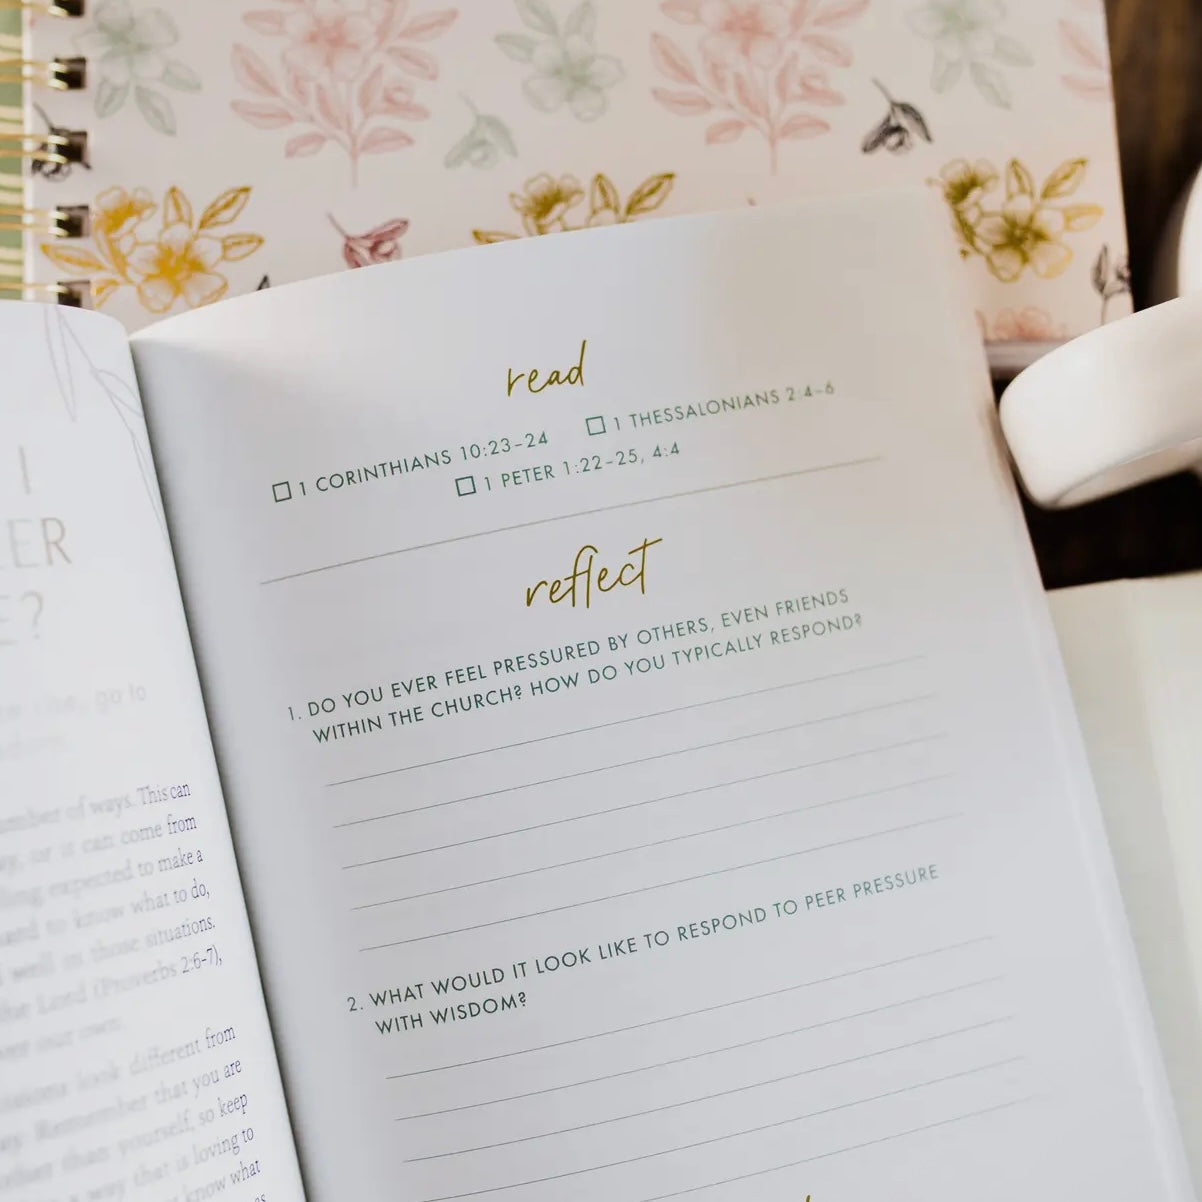 I
ER
E?
go to
mber of ways. This can
or it can come from
expected to make a
to know what to do,
well in those situations.
the Lord (Proverbs 2:6-7),
our own.
look different from
Remember that you are
than yourself, so keep
a way that is loving to
know what
as
read
☐ 1 CORINTHIANS 10:23–24 ☐ 1 THESSALONIANS 2:4–6
☐ 1 PETER 1:22–25, 4:4
reflect
1. DO YOU EVER FEEL PRESSURED BY OTHERS, EVEN FRIENDS
WITHIN THE CHURCH? HOW DO YOU TYPICALLY RESPOND?
2. WHAT WOULD IT LOOK LIKE TO RESPOND TO PEER PRESSURE
WITH WISDOM?